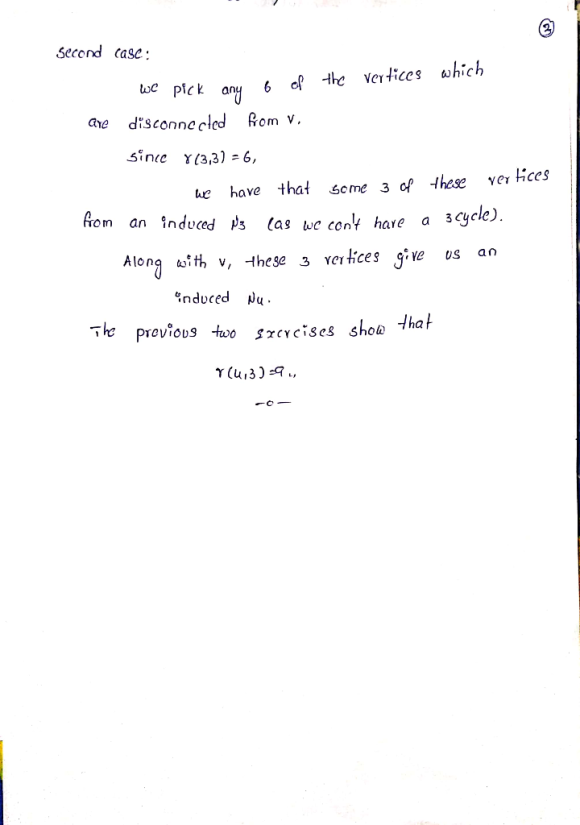 3
second case:
we pick any 6 of the vertices which
are disconnected from v.
since r(3,3) = 6,
we have that some 3 of these vertices
from an induced N3 (as we con't have a 3cycle).
Along with v, these 3 vertices give us an
induced N4.
The previous two exercises show that
r(4,3)=9.,
-o-